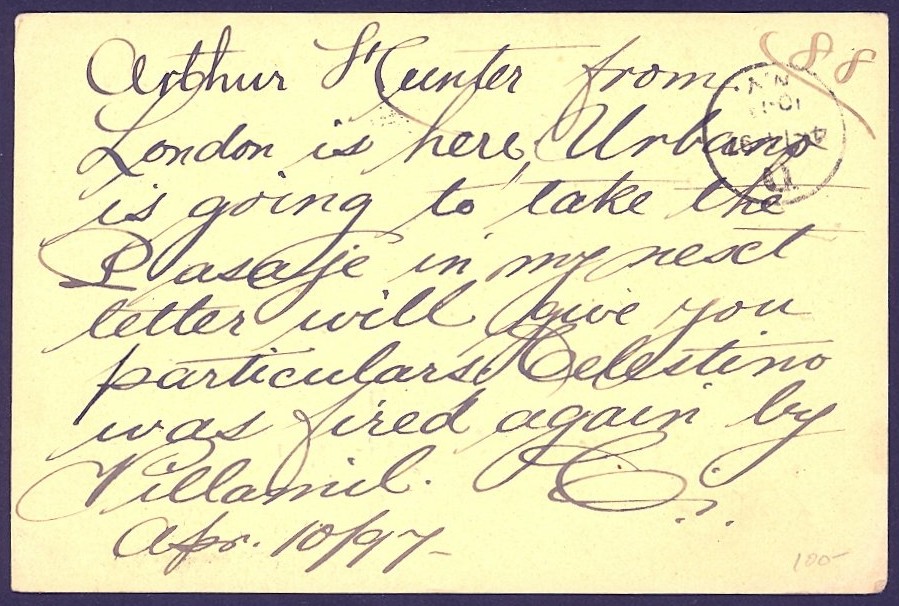 Arthur Hunter from
88
London is here, Urbano
is going to take the
Pasaje in my next
letter will give you
particulars, Celestino
was fired again by
Villamil. C.
Apr. 10/97
100-